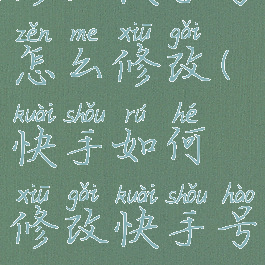 zěn me xiū gǎi
怎么修改(
kuài shǒu rú hé
快手如何
xiū gǎi kuài shǒu hào
修改快手号